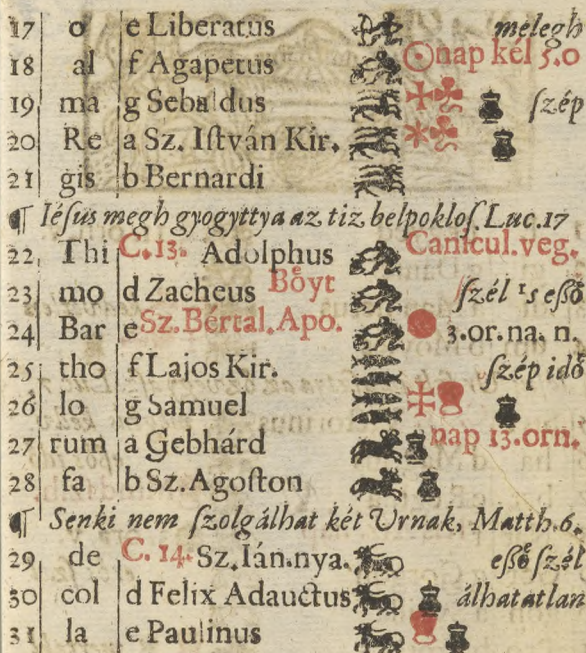 17 o e Liberatus melegh
18 al f Agapetus ☉nap kél 5.0
19 ma g Sebaldus ſzép
20 Re a Sz. Iſtván Kir.
21 gis b Bernardi
¶ Iéſus megh gyogyttya az tiz belpokloſ. Luc.17
22 Thi C.13. Adolphus Canicul.veg.
23 mo d Zacheus Bőyt ſzél 's eſő
24 Bar e Sz.Bértal.Apo. 3.or.na. n.
25 tho f Lajos Kir. ſzép idő
26 lo g Samuel
27 rum a Gebhárd nap 13.orn.
28 fa b Sz. Agoſton
¶ Senki nem ſzolgálhat két Urnak, Matth.6.
29 de C. 14. Sz.Ián.nya. eſő ſzél
30 col d Felix Adauctus álhatatlan
31 la e Paulinus